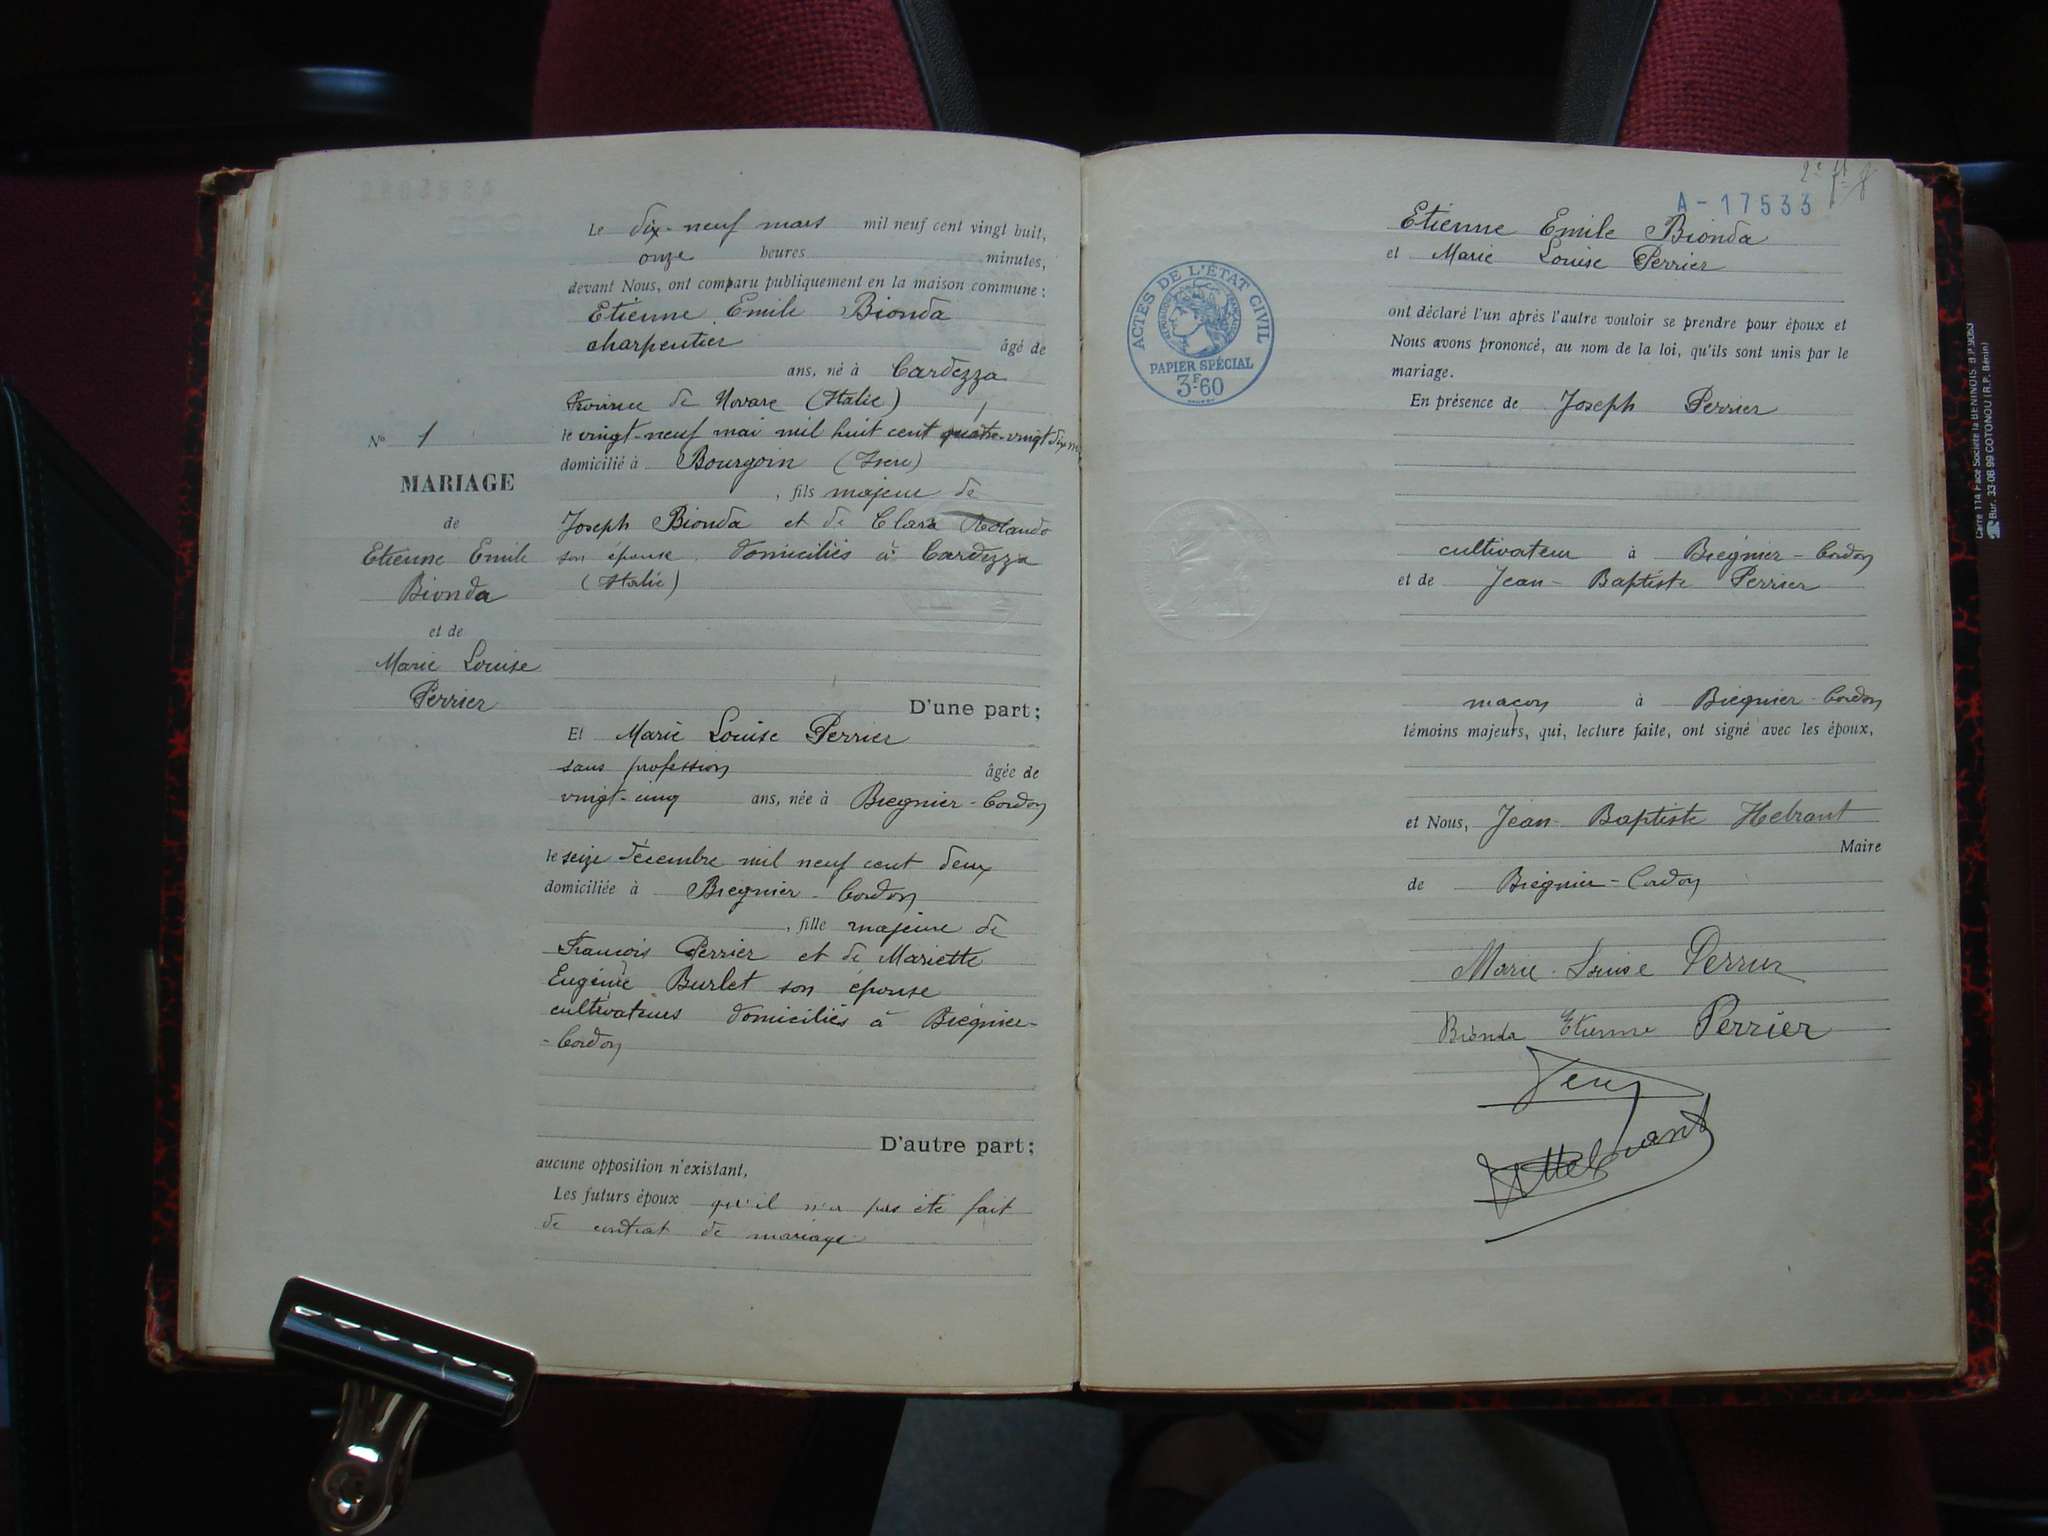 Le dix-neuf mars mil neuf cent vingt huit,
onze heures minutes,
devant Nous, ont comparu publiquement en la maison commune :
Etienne Emile Bionda
charpentier âgé de
ans, né à Cardezza
Province de Novare (Italie)
le vingt-neuf mai mil huit cent quatre-vingt dix
domicilié à Bourgoin (Isère)
, fils majeur de
Joseph Bionda et de Clara Rolando
son épouse domiciliés à Cardezza
(Italie)
D'une part ;
Nº 1
MARIAGE
de
Etienne Emile
Bionda
et de
Marie Louise
Perrier
Et Marie Louise Perrier
sans profession âgée de
vingt-cinq ans, née à Brégnier-Cordon
le seize décembre mil neuf cent deux
domiciliée à Brégnier-Cordon
, fille majeure de
François Perrier et de Mariette
Eugénie Burlet son épouse
cultivateurs domiciliés à Brégnier-
-Cordon
D'autre part ;
aucune opposition n'existant,
Les futurs époux qu'il n'a pas été fait
de contrat de mariage
A-17533
Etienne Emile Bionda
et Marie Louise Perrier
ACTES DE L'ÉTAT CIVIL
PAPIER SPÉCIAL
3F60
ont déclaré l'un après l'autre vouloir se prendre pour époux et
Nous avons prononcé, au nom de la loi, qu'ils sont unis par le
mariage.
En présence de Joseph Perrier
cultivateur à Brégnier-Cordon
et de Jean-Baptiste Perrier
maçon à Brégnier-Cordon
témoins majeurs, qui, lecture faite, ont signé avec les époux,
et Nous, Jean-Baptiste Hebrant
Maire
de Brégnier-Cordon
Marie-Louise Perrier
Bionda Etienne Perrier
Carre 114 Face Société la BENINOIS B.P 9063
Bur. 33-08 99 COTONOU (R.P. Bénin)